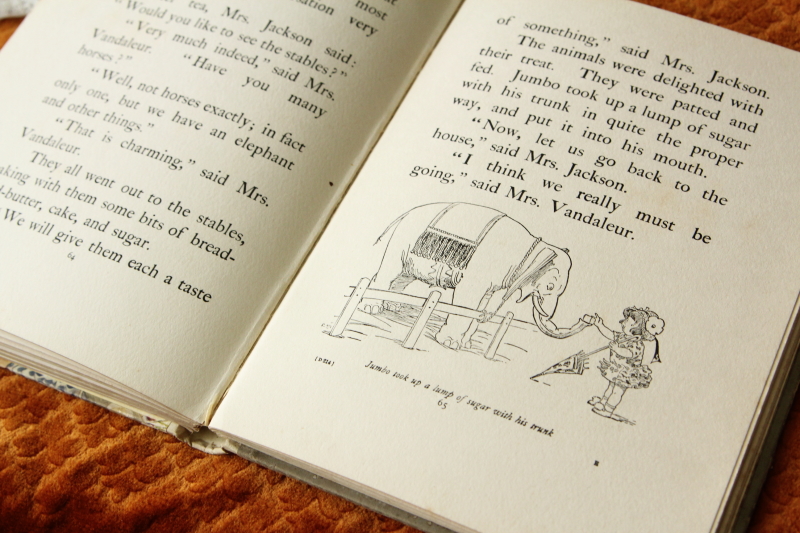 most
tea, Mrs. Jackson said:
very
"Would you like to see the stables?"
"Very much indeed," said Mrs.
Vandaleur. "Have you many
horses?"
"Well, not horses exactly; in fact
only one, but we have an elephant
and other things."
"That is charming," said Mrs.
Vandaleur.
They all went out to the stables,
aking with them some bits of bread-
d-butter, cake, and sugar.
"We will give them each a taste
64
of something," said Mrs. Jackson.
The animals were delighted with
their treat. They were patted and
fed. Jumbo took up a lump of sugar
with his trunk in quite the proper
way, and put it into his mouth.
"Now, let us go back to the
house," said Mrs. Jackson.
"I think we really must be
going," said Mrs. Vandaleur.
Jumbo took up a lump of sugar with his trunk
65